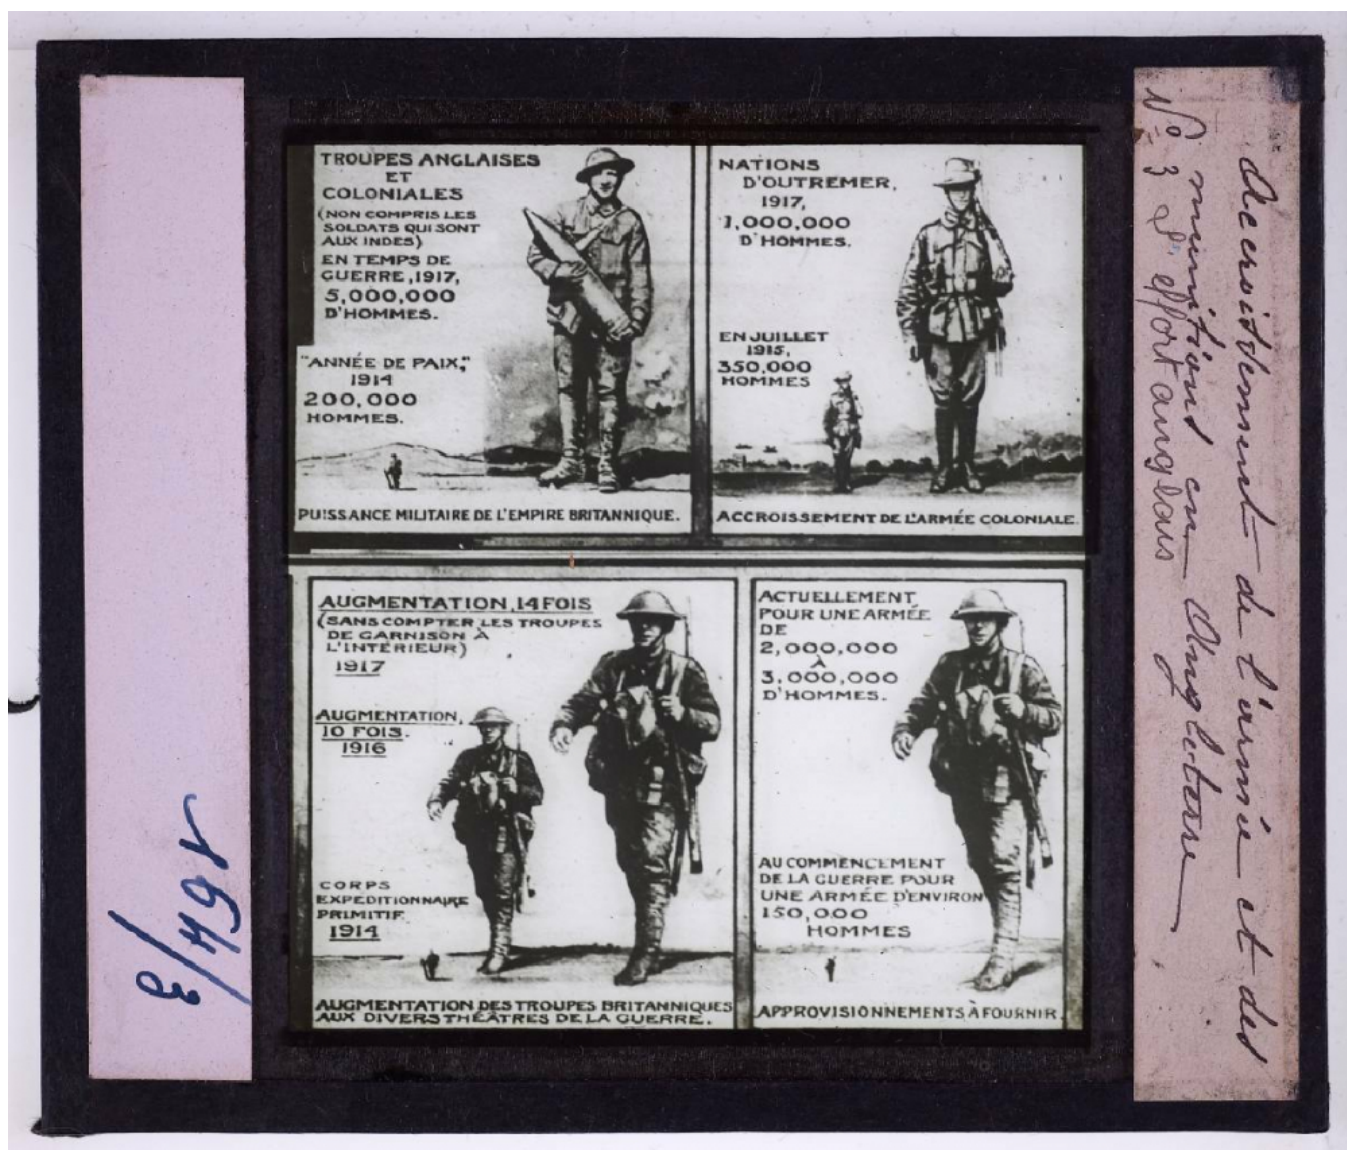 TROUPES ANGLAISES
ET
COLONIALES
(NON COMPRIS LES
SOLDATS QUI SONT
AUX INDES)
EN TEMPS DE
GUERRE, 1917,
5,000,000
D'HOMMES.
"ANNÉE DE PAIX,"
1914
200,000
HOMMES.
PUISSANCE MILITAIRE DE L'EMPIRE BRITANNIQUE.
NATIONS
D'OUTREMER,
1917,
1,000,000
D'HOMMES.
EN JUILLET
1915,
350,000
HOMMES
ACCROISSEMENT DE L'ARMÉE COLONIALE.
AUGMENTATION, 14 FOIS
(SANS COMPTER LES TROUPES
DE GARNISON À
L'INTÉRIEUR)
1917
AUGMENTATION,
10 FOIS.
1916
CORPS
EXPEDITIONNAIRE
PRIMITIF
1914
AUGMENTATION DES TROUPES BRITANNIQUES
AUX DIVERS THÉÂTRES DE LA GUERRE.
ACTUELLEMENT
POUR UNE ARMÉE
DE
2,000,000
À
3,000,000
D'HOMMES.
AU COMMENCEMENT
DE LA GUERRE POUR
UNE ARMÉE D'ENVIRON
150,000
HOMMES
APPROVISIONNEMENTS À FOURNIR.
Accroissement de l'armée et des
munitions en Angleterre
No 3 effort anglais